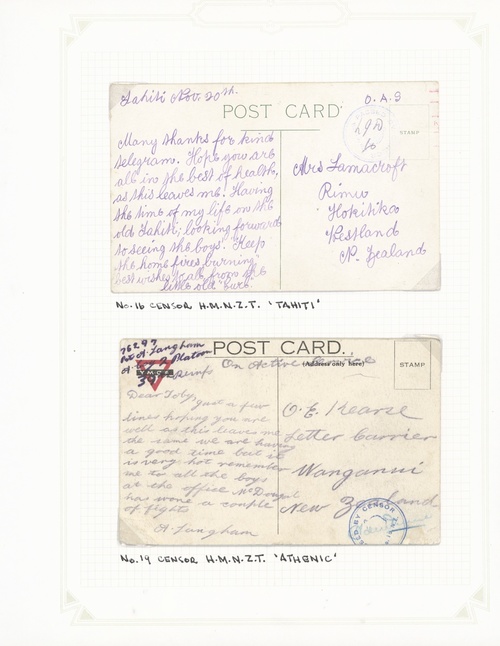 Tahiti Nov. 20th.
O.A.S
POST CARD
STAMP
Many thanks for kind
telegram. Hope you are
all in the best of health,
as this leaves me. Having
the time of my life on the
old Tahiti; looking forward
to seeing the boys. "Keep
the home fires burning"
best wishes to all from the
little old
Mrs Lamacroft
Rimu
Hokitika
Westland
N. Zealand
No. 16 CENSOR H.M.N.Z.T. 'TAHITI'
POST CARD.
(Address only here)
On Active Service
STAMP
A. Langham
Platoon
Reinfs
Dear Toby, just a few
lines hoping you are
well as this leaves me
the same we are having
a good time but it
is very hot remember
me to all the boys
at the office
has won a couple
of fights
A. Langham
O. E. Kearse
Letter Carrier
Wanganui
New Zealand
BY CENSOR
No. 19 CENSOR H.M.N.Z.T. 'ATHENIC'